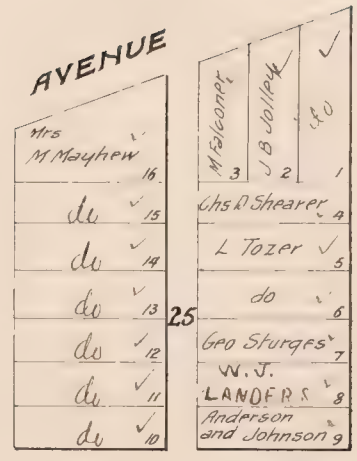 AVENUE
Mrs
M Mayhew
16
do
15
do
14
do
13
do
12
do
11
do
10
25
M Falconer
3
J B Jolley
2
do
1
Chs D Shearer
4
L Tozer
5
do
6
Geo Sturges
7
W. J.
LANDERS
8
Anderson
and Johnson 9